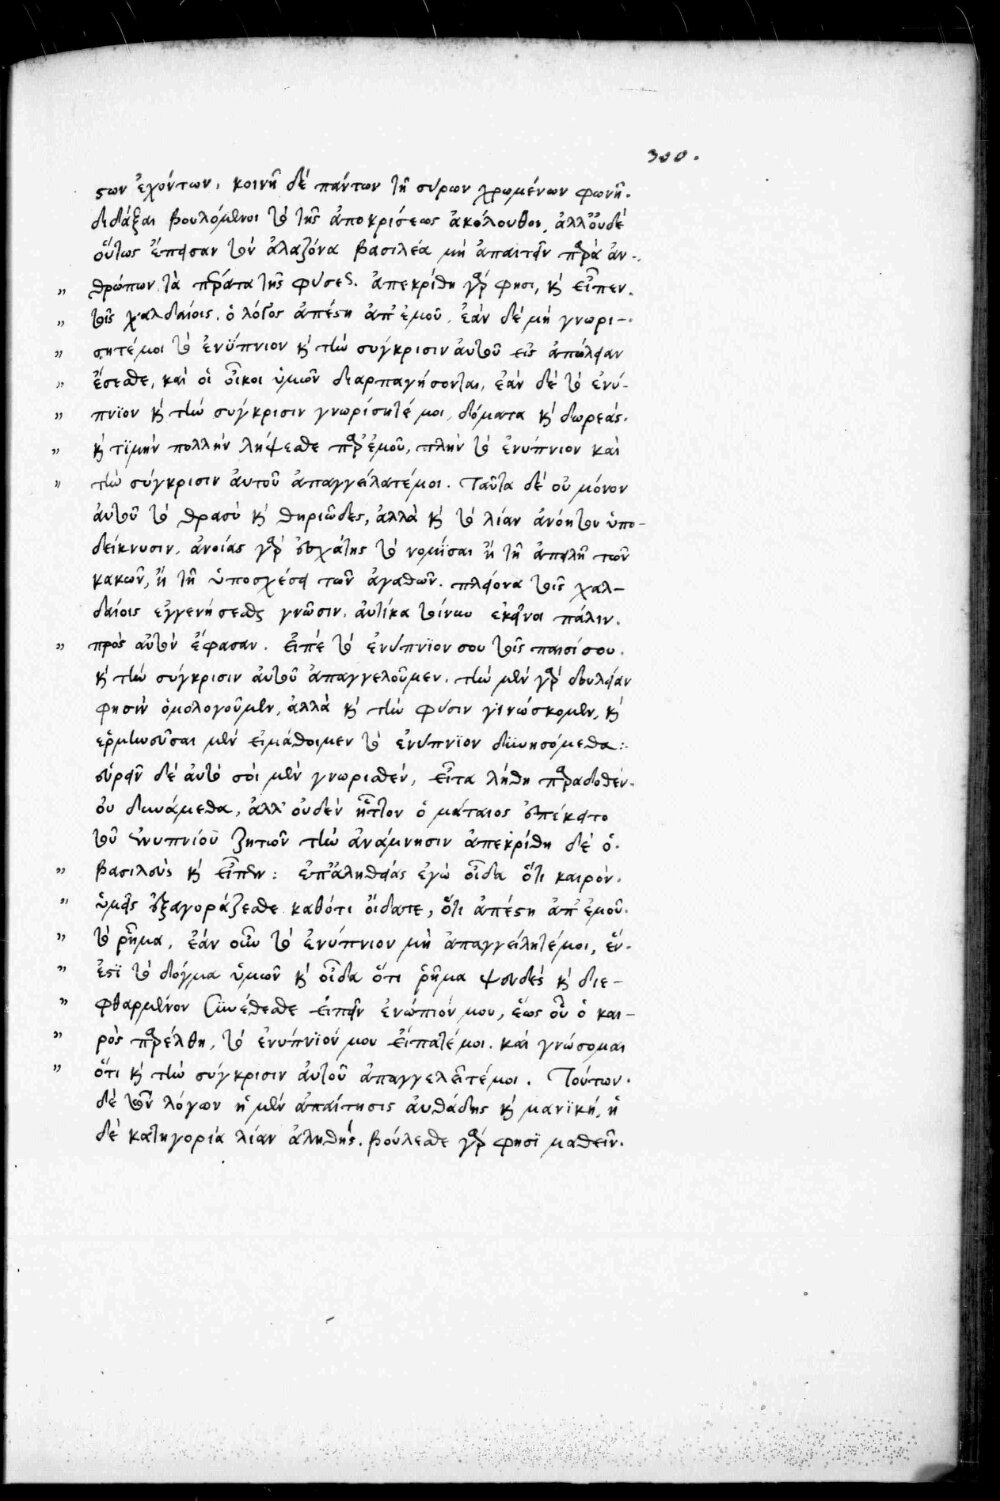 300.
στων ἐχόντων, κοινῇ δὲ πάντων τῇ σύρων χρωμένων φωνῇ.
διδάξαι βουλόμενοι τὸ τῆς ἀποκρίσεως ἀκόλουθον, ἀλλ' οὐδὲ
οὕτως ἔπεισαν τὸν ἀλαζόνα βασιλέα μὴ ἀπαιτεῖν παρὰ ἀν-
„ θρώπων τὰ πέρατα τῆς φύσεως. ἀπεκρίθη γάρ φησι, καὶ εἶπεν.
„ τοῖς χαλδαίοις, ὁ λόγος ἀπέστη ἀπ' ἐμοῦ, ἐὰν δὲ μὴ γνωρί-
„ σητέ μοι τὸ ἐνύπνιον καὶ τὴν σύγκρισιν αὐτοῦ εἰς ἀπώλειαν
„ ἔσεσθε, καὶ οἱ οἶκοι ὑμῶν διαρπαγήσονται, ἐὰν δὲ τὸ ἐνύ-
„ πνϊον καὶ τὴν σύγκρισιν γνωρίσητέ μοι, δόματα καὶ δωρεάς.
„ καὶ τϊμὴν πολλὴν λήψεσθε παρ' ἐμοῦ, πλὴν τὸ ἐνύπνιον καὶ
„ τὴν σύγκρισιν ἀυτοῦ ἀπαγγείλατέ μοι. Ταῦτα δὲ οὐ μόνον
ἀυτοῦ τὸ θρασὺ καὶ θηριῶδες, ἀλλὰ καὶ τὸ λίαν ἀνόητον ὑπο-
δείκνυσιν, ἀνοίας γὰρ ἐσχάτης τὸ νομίσαι ἢ τῇ ἀπειλῇ τῶν
κακῶν, ἢ τῇ ὑποσχέσει τῶν ἀγαθῶν. πλείονα τοῖς χαλ-
δαίοις ἐγγενήσεσθαι γνῶσιν. ἀυτίκα τοίνυν ἐκεῖνοι πάλιν.
„ πρὸς αὐτὸν ἔφασαν. Εἰπὲ τὸ ἐνύπνϊον σου τοῖς παισί σου.
καὶ τὴν σύγκρισιν ἀυτοῦ ἀπαγγελοῦμεν. τὴν μὲν γὰρ δουλείαν
φησὶν ὁμολογοῦμεν, ἀλλὰ καὶ τὴν φύσιν γϊνώσκομεν, καὶ
ἑρμηνεῦσαι μὲν εἰ μάθοιμεν τὸ ἐνύπνϊον δυνησόμεθα:
εὑρεῖν δὲ ἀυτὸ σοὶ μὲν γνωρισθὲν, εἶτα λήθῃ παραδοθέν.
οὐ δυνάμεθα, ἀλλ' οὐδὲν ἧττον ὁ μάταιος ἐπέκειτο
τοῦ ἐνυπνίου ζητῶν τὴν ἀνάμνησιν ἀπεκρίθη δὲ ὁ.
„ βασιλεὺς καὶ εἶπεν: ἐπ' ἀληθείας ἐγὼ οἶδα ὅτι καιρὸν.
„ ὑμεῖς ἐξαγοράζεσθε καθότι ὄιδατε, ὅτι ἀπέστη ἀπ' ἐμοῦ.
„ τὸ ῥῆμα, ἐὰν οὖν τὸ ἐνύπνιον μὴ ἀπαγγείλητέ μοι, ἕν.
„ ἐστϊ τὸ δόγμα ὑμῶν καὶ οἶδα ὅτι ῥῆμα ψευδὲς καὶ διε-
„ φθαρμένον συνέθεσθε εἰπεῖν ἐνώπιόν μου, ἕως οὗ ὁ και-
„ ρὸς παρέλθῃ, τὸ ἐνύπνϊόν μου εἴπατέ μοι. καὶ γνώσομαι
„ ὅτι καὶ τὴν σύγκρισιν ἀυτοῦ ἀπαγγελεῖτέ μοι. Τούτων.
δὲ τῶν λόγων ἡ μὲν ἀπαίτησις ἀυθάδης καὶ μανϊκή, ἡ
δὲ κατηγορία λίαν ἀληθής. βούλεσθε γάρ φησϊ μαθεῖν.